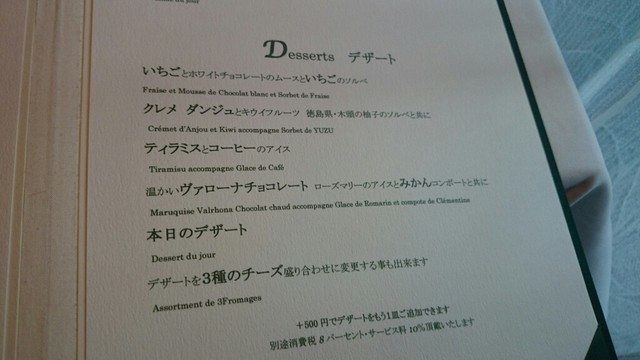 du jour
Desserts デザート
いちごとホワイトチョコレートのムースといちごのソルベ
Fraise et Mousse de Chocolat blanc et Sorbet de Fraise
クレメ ダンジュとキウイフルーツ 徳島県・木頭の柚子のソルベと共に
Crémet d'Anjou et Kiwi accompagne Sorbet de YUZU
ティラミスとコーヒーのアイス
Tiramisu accompagne Glace de Café
温かいヴァローナチョコレート ローズマリーのアイスとみかんコンポートと共に
Maruquise Valrhona Chocolat chaud accompagne Glace de Romarin et compote de Clémentine
本日のデザート
Dessert du jour
デザートを3種のチーズ盛り合わせに変更する事も出来ます
Assortment de 3Fromages
＋500 円でデザートをもう1皿ご追加できます
別途消費税 8 パーセント・サービス料 10％頂戴いたします